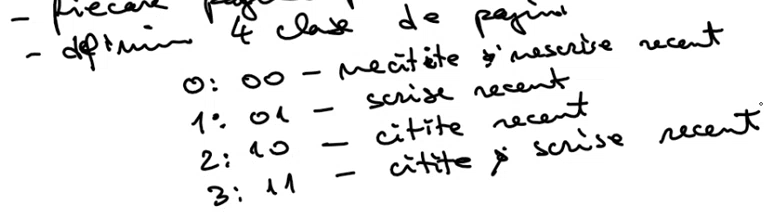 - fiecare
- definim 4 clase de pagini
0: 00 - necitite și nescrise recent
1: 01 - scrise recent
2: 10 - citite recent
3: 11 - citite și scrise recent